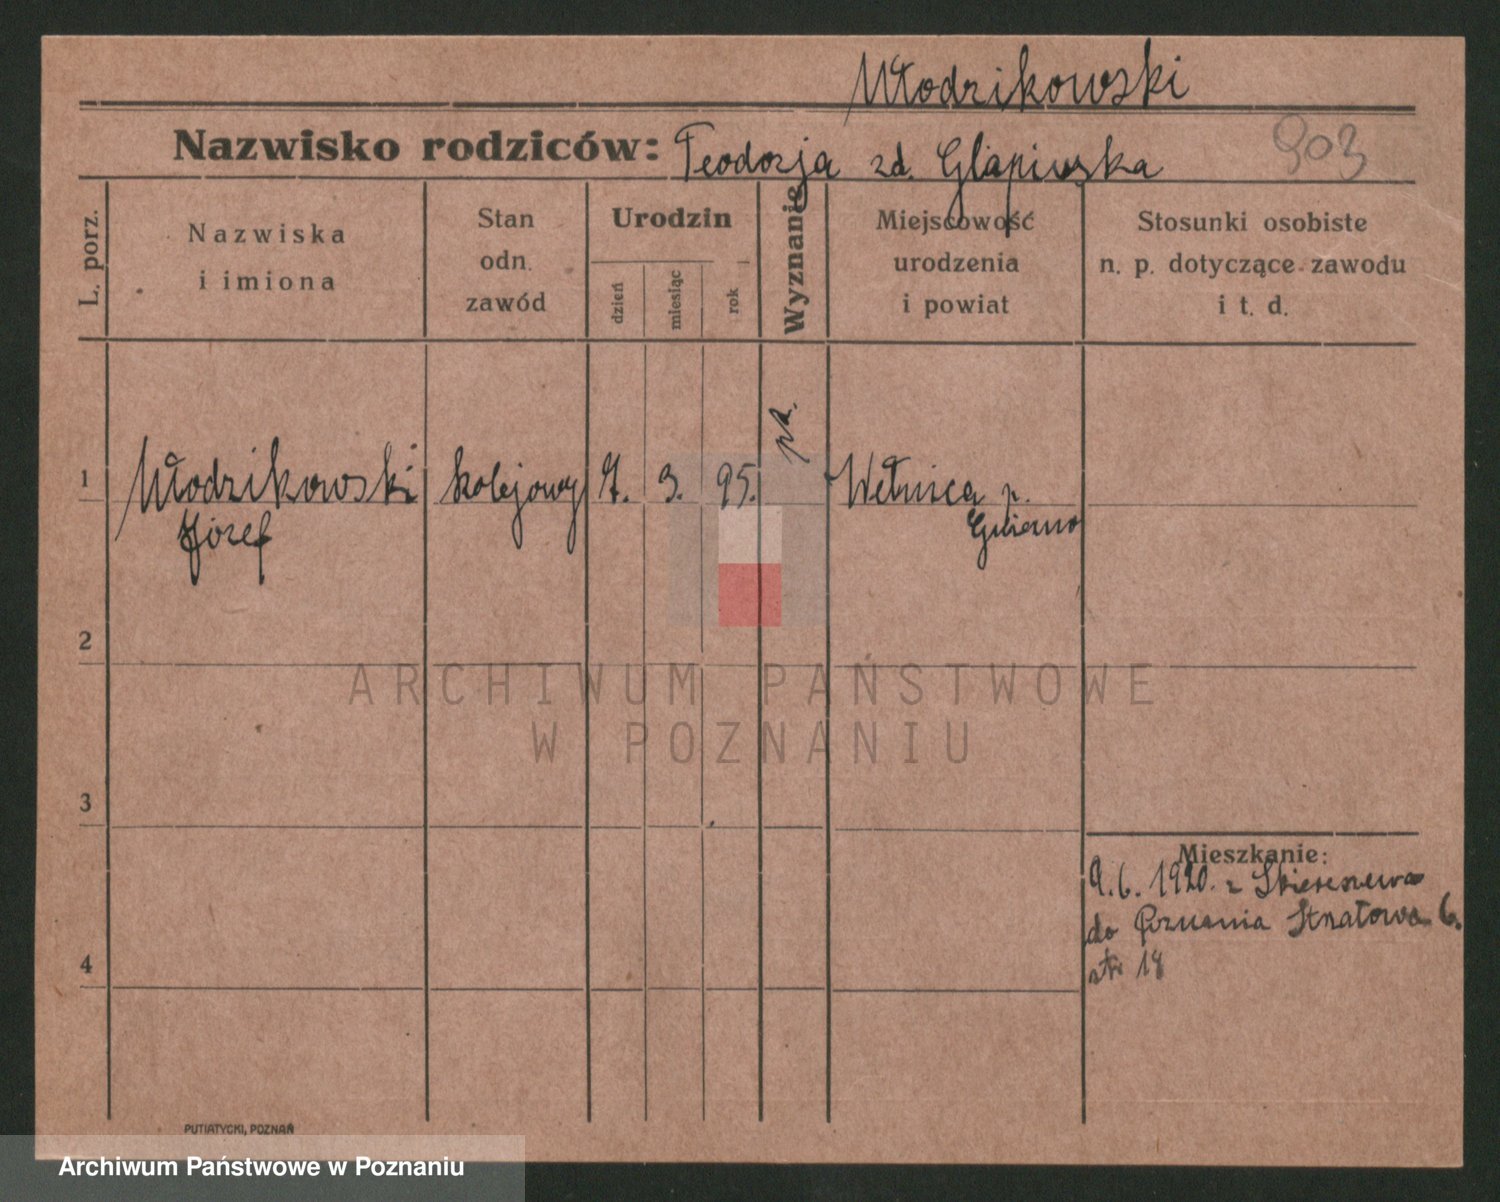 Włodzikowski
903
Nazwisko rodziców: Teodozja zd. Glapińska
L. porz.
Nazwiska
i imiona
Stan
odn.
zawód
Urodzin
dzień
miesiąc
rok
Wyznanie
Miejscowość
urodzenia
i powiat
Stosunki osobiste
n. p. dotyczące zawodu
i t. d.
1
Włodzikowski
Józef
kolejowy
7. 3. 95.
Wełnica p.
2
ARCHIWUM PAŃSTWOWE
W POZNANIU
3
Mieszkanie:
9.6. 1920. z
do Poznania 6.
4
PUTIATYCKI, POZNAŃ
Archiwum Państwowe w Poznaniu